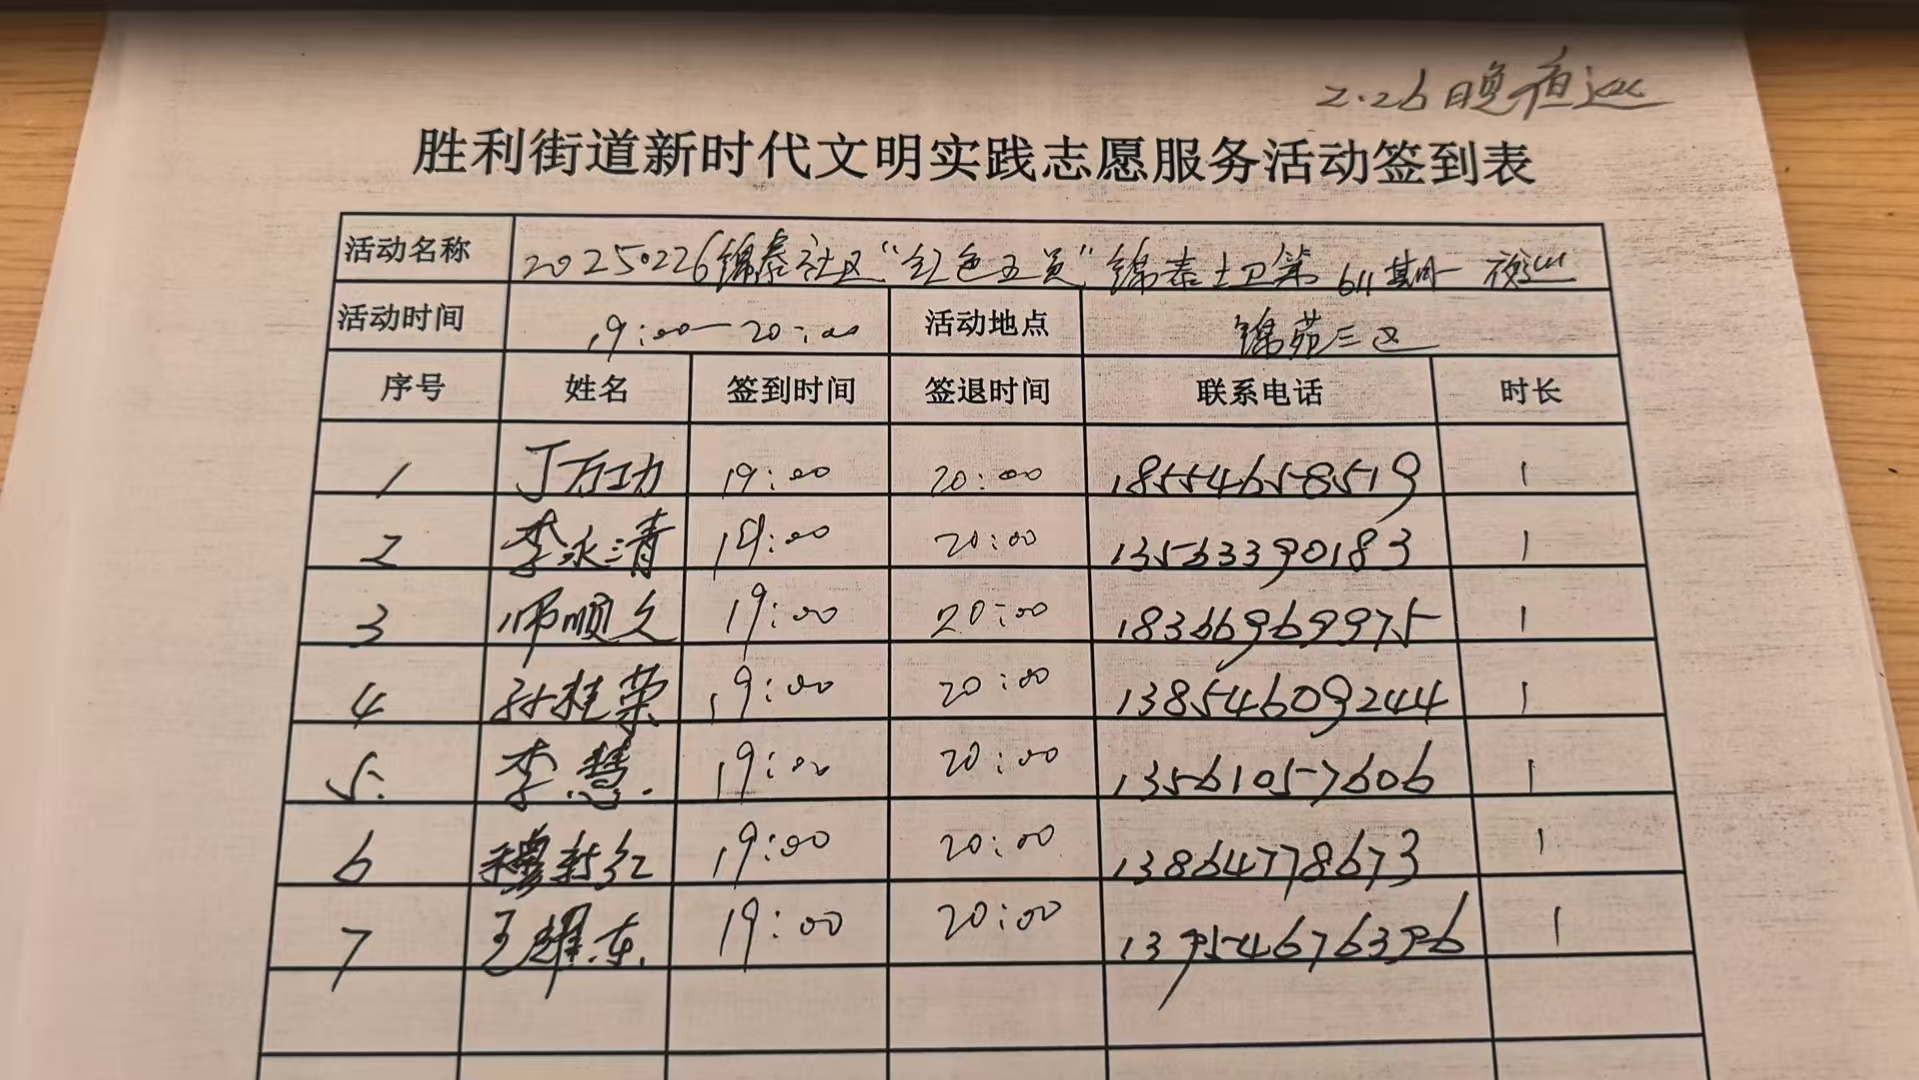 2.26日晚夜巡
胜利街道新时代文明实践志愿服务活动签到表
活动名称 20250226锦泰社区“红色五员”锦泰士卫第611期—夜巡
活动时间 19:00—20:00 活动地点 锦苑三区
序号 姓名 签到时间 签退时间 联系电话 时长
1 丁万功 19:00 20:00 18554658519 1
2 李永清 19:00 20:00 13563390183 1
3 师顺久 19:00 20:00 18366969975 1
4 孙桂荣 19:00 20:00 13854609244 1
5. 李慧. 19:00 20:00 13561057606 1
6 穆新红 19:00 20:00 13864778673 1
7 王耀东. 19:00 20:00 13954676396 1